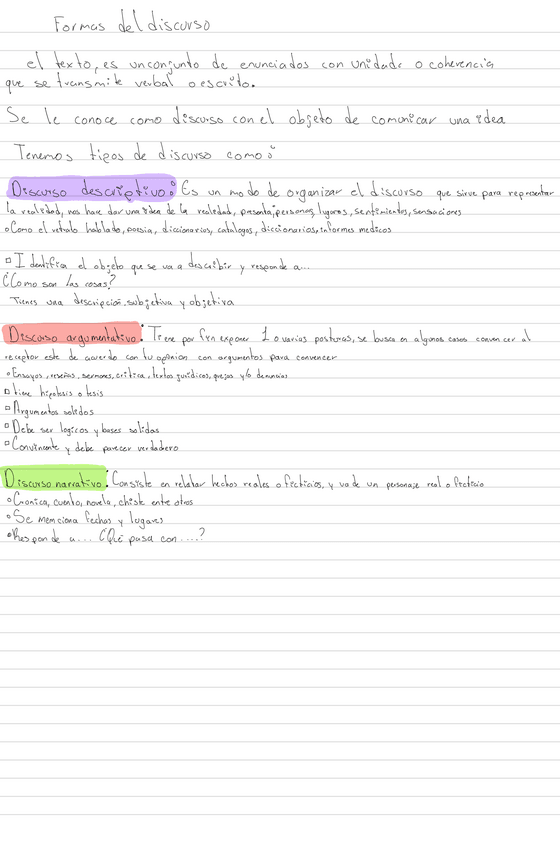 Formas del discurso
el texto, es un conjunto de enunciados con unidade o coherencia
que se transmite verbal o escrito.
Se le conoce como discurso con el objeto de comunicar una idea
Tenemos tipos de discurso como:
Discurso descriptivo: Es un modo de organizar el discurso que sirve para representar
la realidad, nos hace dar una idea de la realidad, presenta, personas, lugares, sentimientos, sensaciones
°Como el retrato hablado, poesia, diccionarios, catalogos, diccionarios, informes medicos
▫Identifica el objeto que se va a describir y responde a...
¿Como son las cosas?
Tienes una descripcion, subjetiva y objetiva
Discurso argumentativo: Tiene por fin exponer 1 o varias posturas, se busca en algunos casos convencer al
receptor este de acuerdo con tu opinion con argumentos para convencer
°Ensayos, reseñas, sermones, critica, textos juridicos, quejas y/o denuncias
▫tiene hipotesis o tesis
▫Argumentos solidos
▫Debe ser logicos y bases solidas
▫Convincente y debe parecer verdadero
Discurso narrativo: Consiste en relatar hechos reales o ficticios, y va de un personaje real o ficticio
°Cronica, cuento, novela, chiste entre otros
°Se menciona fechas y lugares
°Responde a... ¿Qué pasa con....?